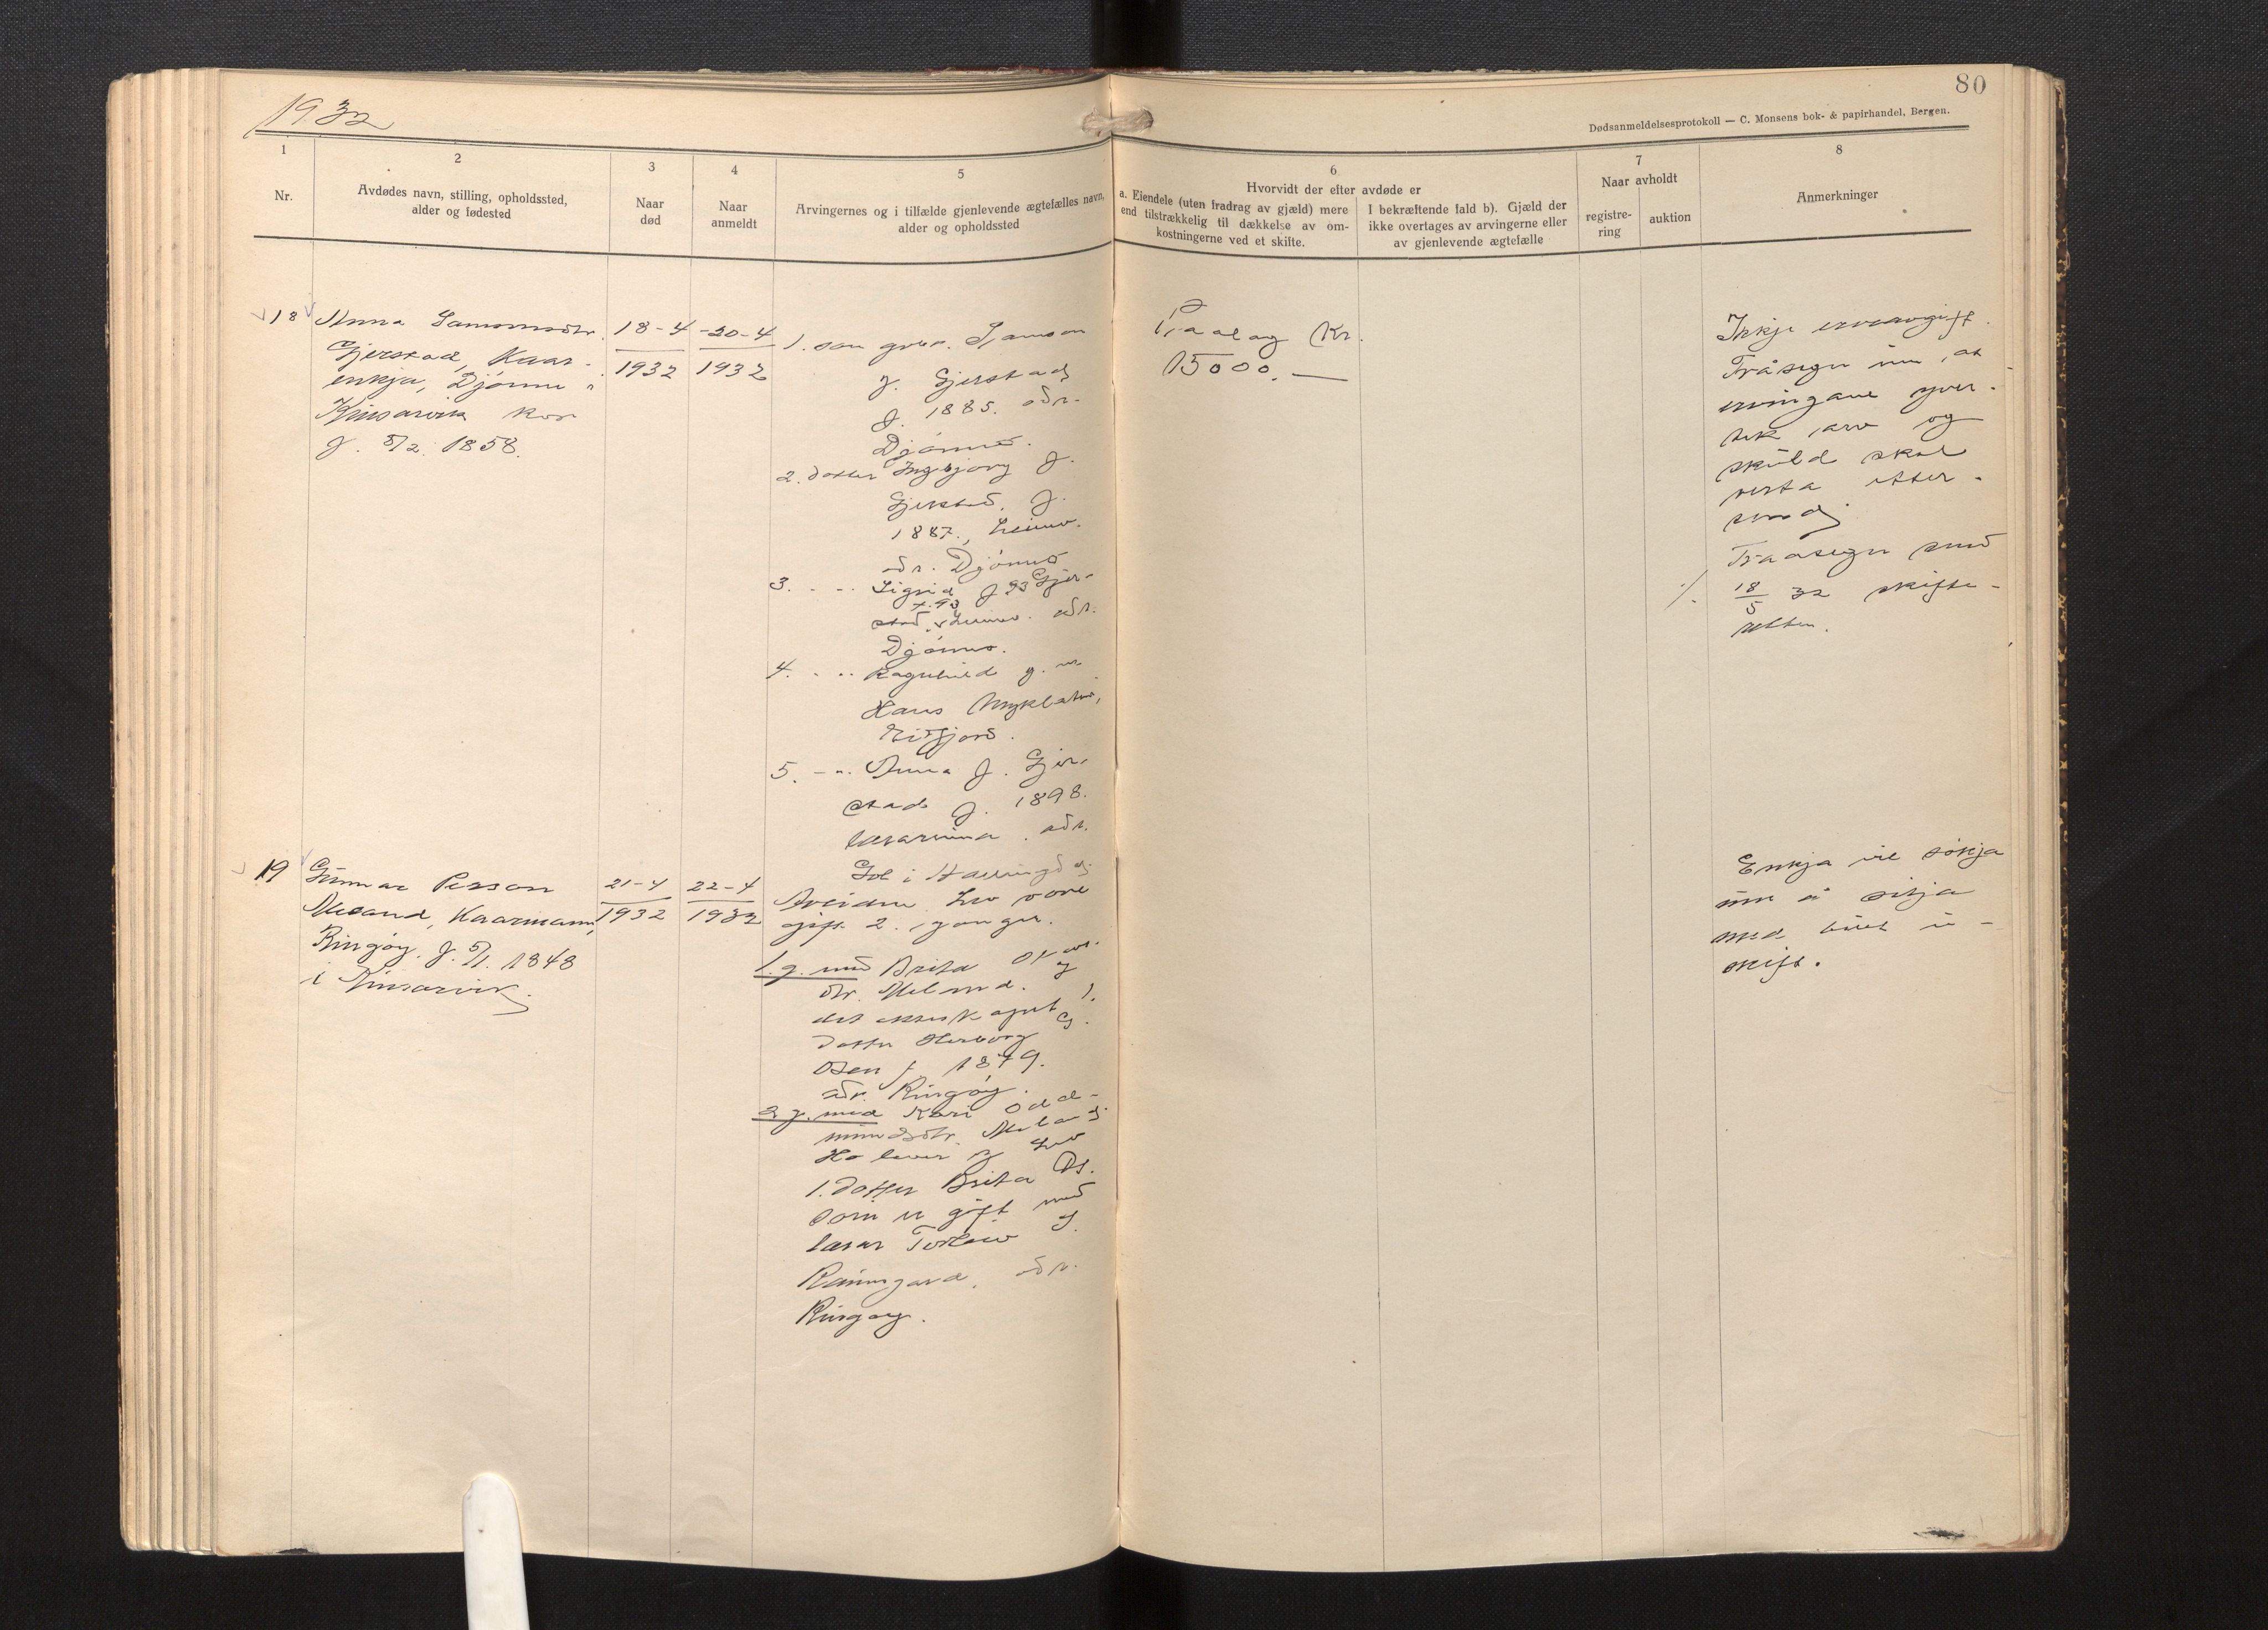 1932
80
Dødsanmeldelsesprotokoll — C. Monsens bok- & papirhandel, Bergen.
1
Nr.
2
Avdødes navn, stilling, opholdssted,
alder og fødested
3
Naar
død
4
Naar
anmeldt
5
Arvingernes og i tilfælde gjenlevende ægtefælles navn,
alder og opholdssted
6
Hvorvidt der efter avdøde er
a. Eiendele (uten fradrag av gjæld) mere
end tilstrækkelig til dækkelse av om-
kostningerne ved et skifte.
I bekræftende fald b). Gjæld der
ikke overtages av arvingerne eller
av gjenlevende ægtefælle
7
Naar avholdt
registre-
ring
auktion
8
Anmerkninger
18
Anna Samsonsdtr.
Gjerstad, Kaar-
enkja, Djønne i
Kinsarvik
f. 5/2 1858.
18-4
1932
20-4
1932
1. son gbr. Samson
J. Gjerstad
f. 1885. adr.
Djønno.
2. dotter Ingebjørg J.
Gjerstad, f.
1887., heime.
adr. Djønno
3. - " - Sigrid J. Gjer-
stad, heime. adr.
Djønno.
4. - " - Ragnhild g. m.
Hans Myklatun,
Eidfjord.
5. - " - Anna J. Gjer-
stad f. 1898.
lærarinna. adr.
Gol i Hallingdal
Paalag Kr.
15000.—
Inkje ervaavgift.
Fråsegn um, at
ervingane yver-
tek arv og
skuld skal
verta etter-
send
Fraasegn send
18/5 32 skifte-
retten.
19
Gunnar Person
Meland, Kaarmann,
Ringøy. f. 5/1. 1848
i Kinsarvik.
21-4
1932
22-4
1932
Avidne hev vore
gift 2. gonger.
1. g. med Brita
dtr. Meland. og
det ekteskapet 1.
dotter Herborg G.
Osen f. 1879.
adr. Ringøy.
2 g. med Kari Odd-
mundsdtr. Meland
Ho lever og hev
1. dotter Brita
som er gift med
lærar Torleiv S.
adr.
Ringøy.
Enkja vil søkja
um å sitja
med buet u-
skift.